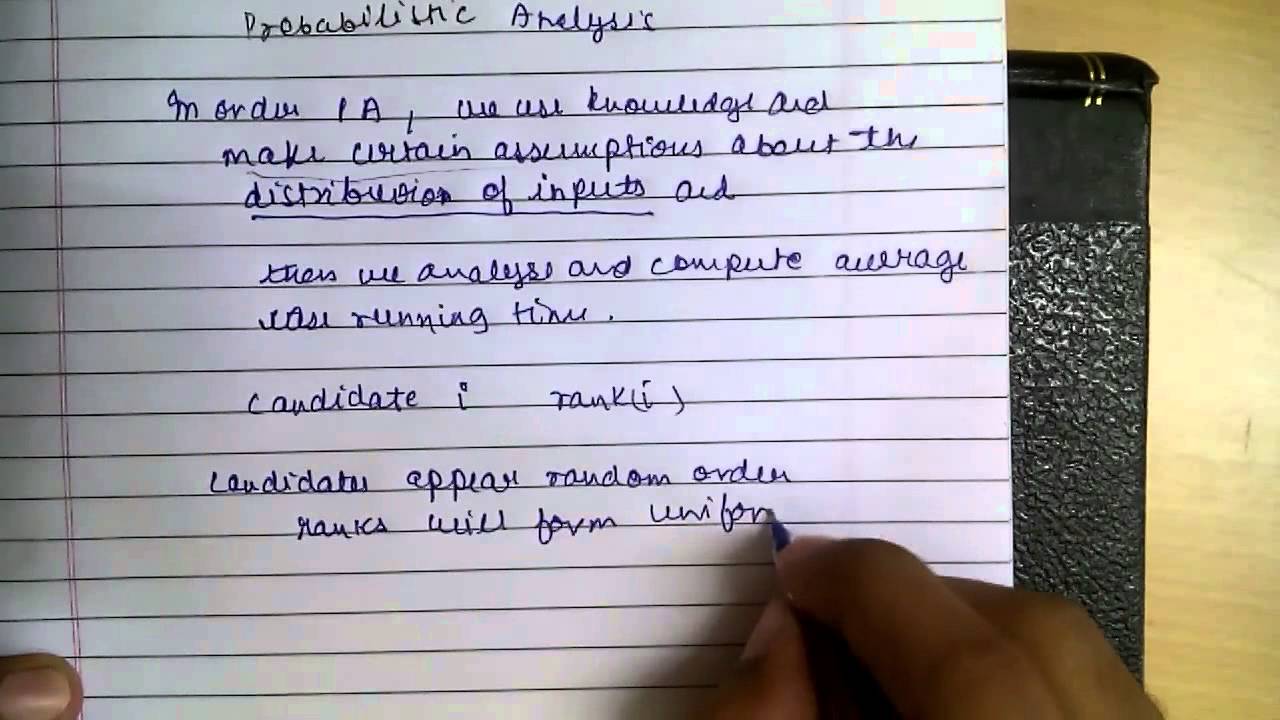 Probabilistic Analysis
In order PA, we use knowledge and
make certain assumptions about the
distribution of inputs and
then we analyse and compute average
case running time.
Candidate i rank(i)
Candidates appear random order
ranks will form uniform